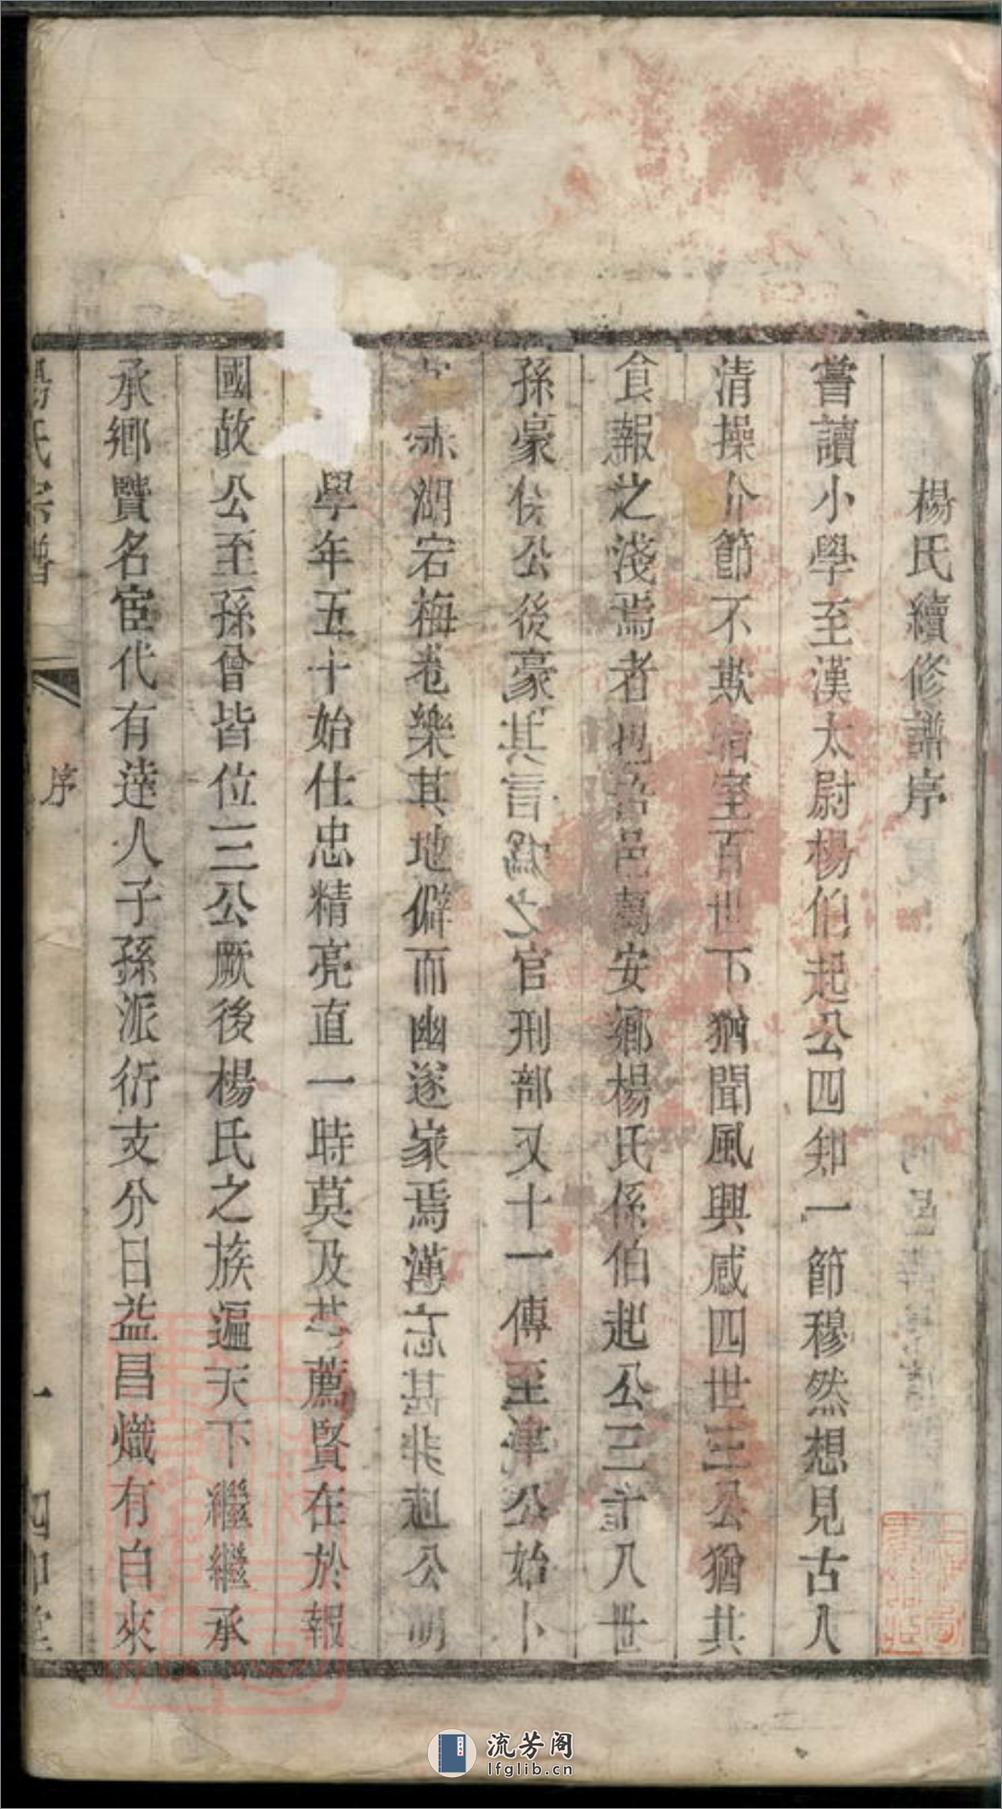 楊氏續修譜序
嘗讀小學至漢太尉楊伯起公四知一節穆然想見古人
清操介節不欺室百世下猶聞風興感四世三公猶其
食報之淺焉者也邑萬安鄉楊氏係伯起公三十八世
孫豪侯公後豪其言爲之官刑部又十一傳至津公始卜
湖宕梅卷樂其地僻而幽遂家焉漢公
學年五十始仕忠精亮直一時莫及其薦賢在於報
國故公至孫曾皆位三公厥後楊氏之族遍天下繼繼承
承鄉賢名宦代有達人子孫派衍支分日益昌熾有自來
楊氏宗譜
序
一
四知堂
流芳阁
lfglib.cn